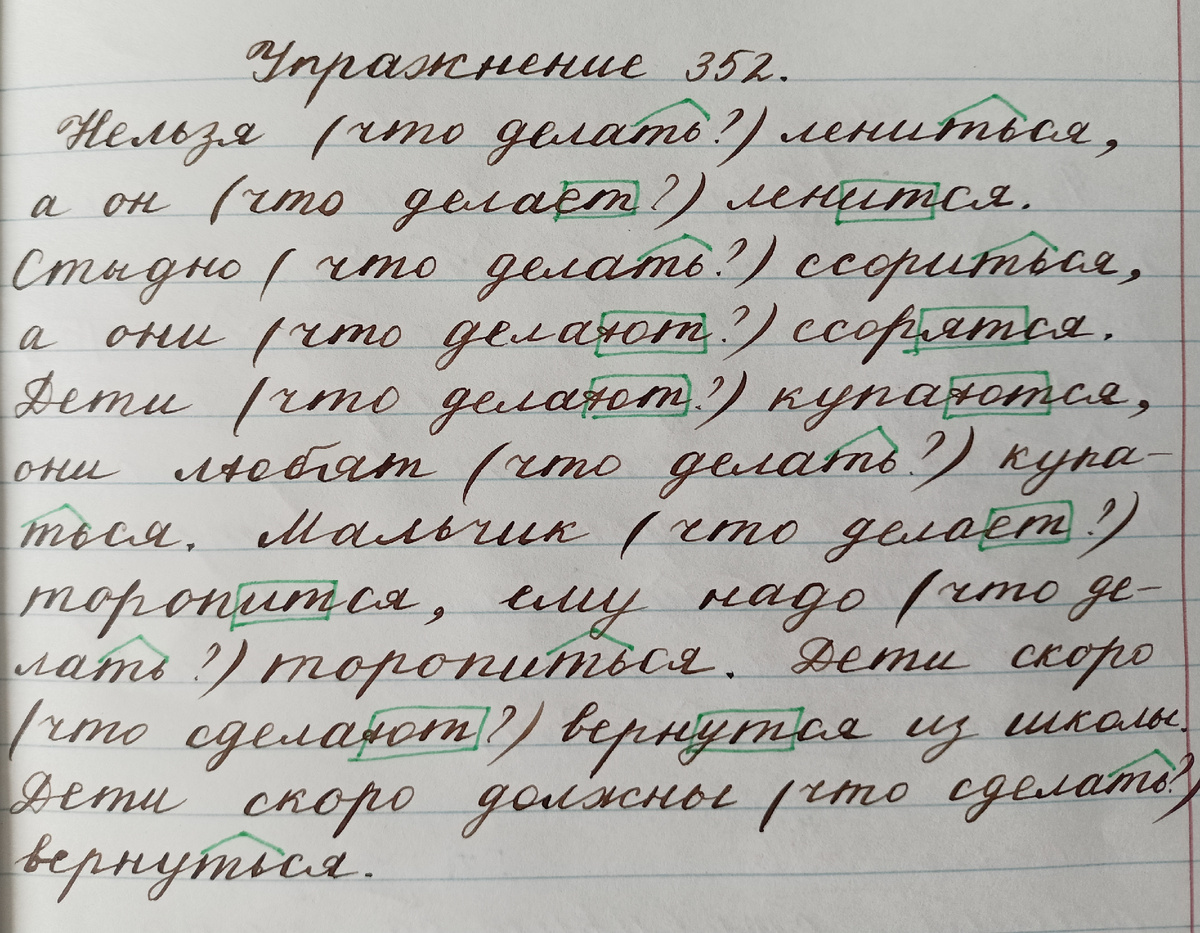 Упражнение 352.
Нельзя (что делать?) лениться,
а он (что делает?) ленится.
Стыдно (что делать?) ссориться,
а они (что делают?) ссорятся.
Дети (что делают?) купаются,
они любят (что делать?) купа-
ться. Мальчик (что делает?)
торопится, ему надо (что де-
лать?) торопиться. Дети скоро
(что сделают?) вернутся из школы.
Дети скоро должны (что сделать?)
вернуться.